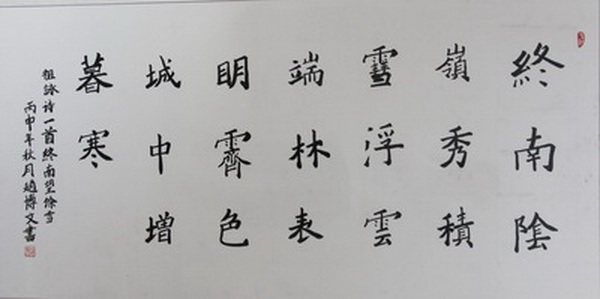 終南陰
嶺秀積
雪浮雲
端林表
眀霽色
城中增
暮寒
祖詠诗一首終南望餘雪
丙申年秋月趙博文書